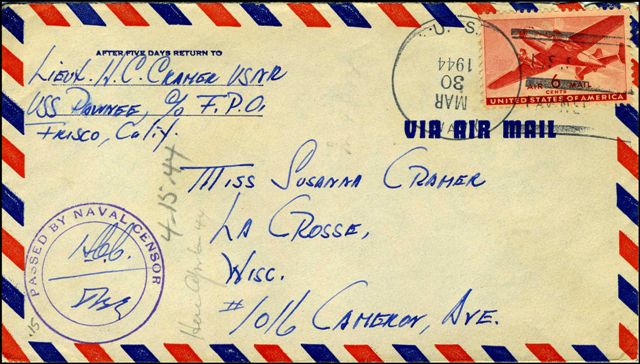 AFTER FIVE DAYS RETURN TO
LIEUT. H.C. CRAMER USNR
USS PAWNEE, c/o F.P.O.
FRISCO, CALIF.
U. S.
MAR
30
1944
AIR 6 MAIL
CENTS
UNITED STATES OF AMERICA
VIA AIR MAIL
MISS SUSANNA CRAMER
LA CROSSE,
WISC.
#1016 CAMERON, AVE.
4-15-44
PASSED BY NAVAL CENSOR
H.C.C.